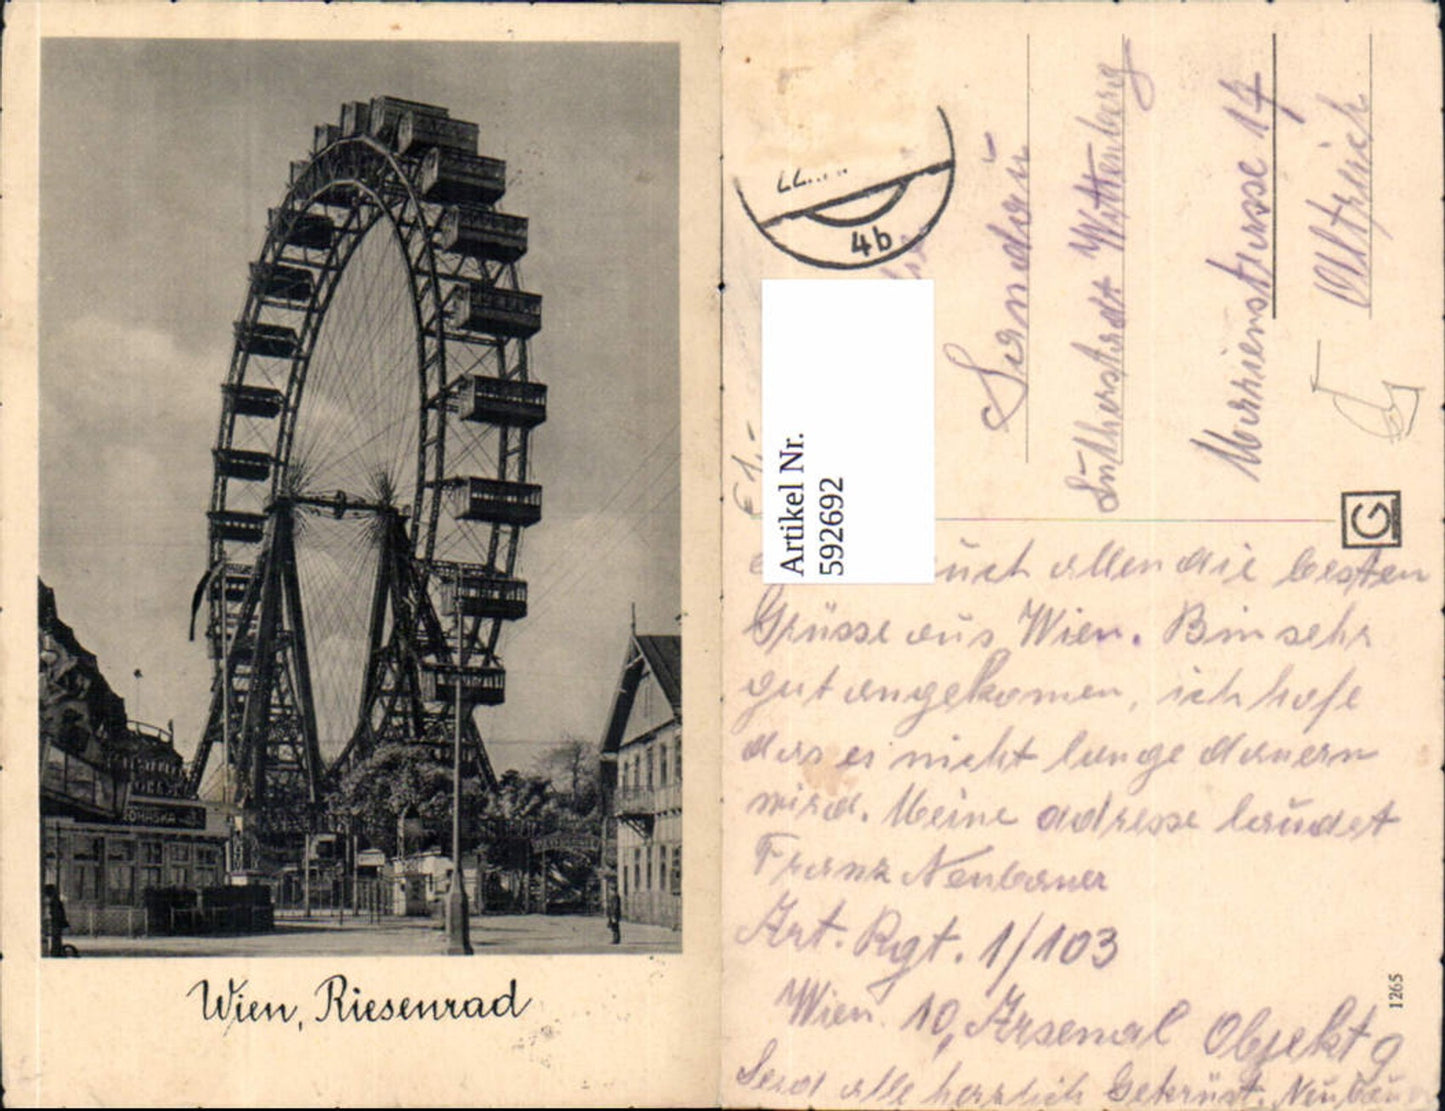 TOMASKA
Wien, Riesenrad
4b
Artikel Nr.
592692
Lutherstadt Wittenberg
Marienstrasse 17
Altreich
G
euch allen die besten
Grüsse aus Wien. Bin sehr
gut angekomen, ich hofe
das es nicht lange dauern
wird. Meine adresse laudet
Franz Neubauer
Art. Rgt. 1/103
Wien 10, Arsenal Objekt 9
Seid alle herzlich Gekrüst. Neubau
1265